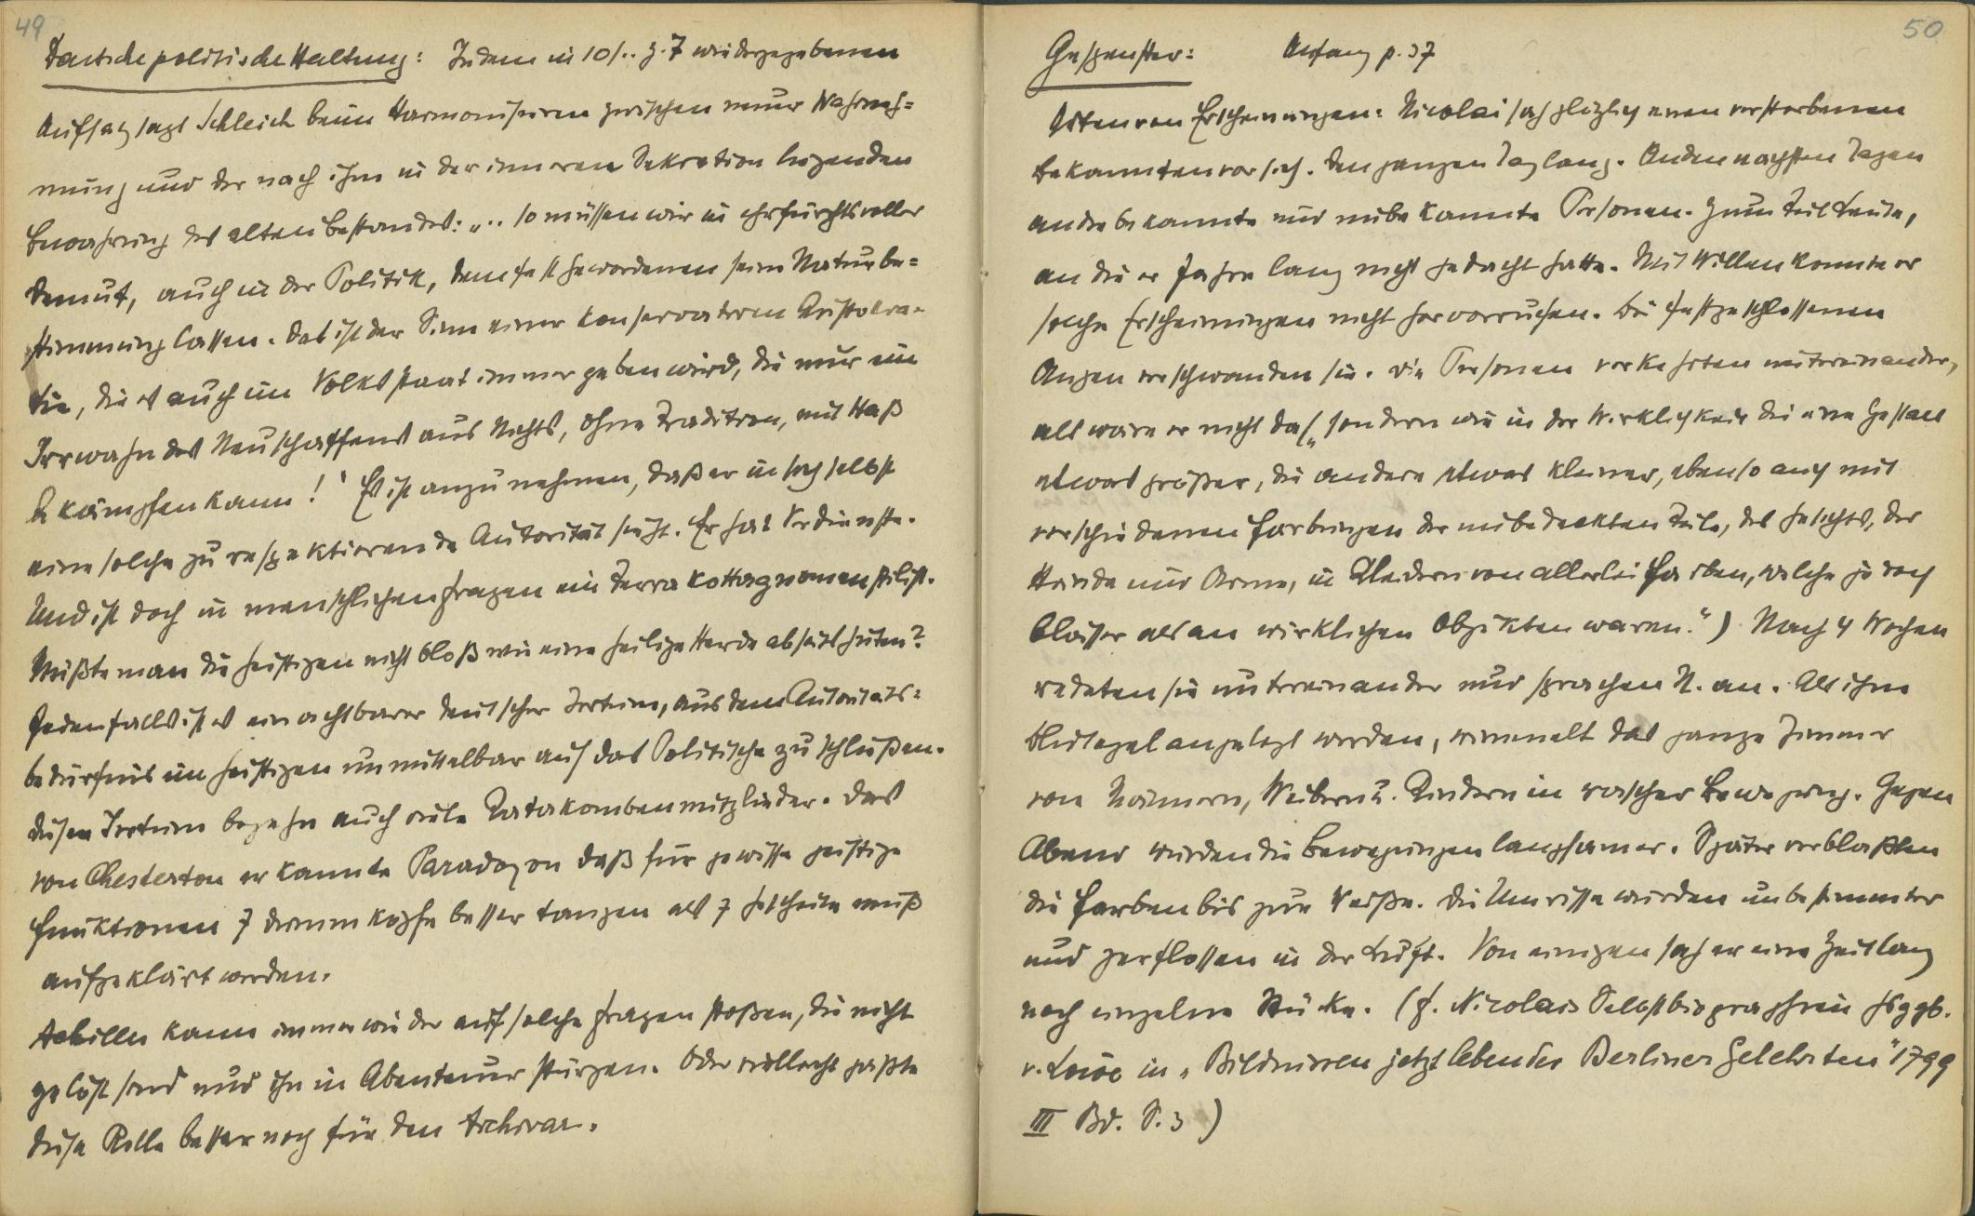 49
Deutsche politische Haltung: In dem in 10/.. z. 7 wiedergegebenen
Aufsatz sagt Schleich beim Harmonisieren zwischen neuer Wahrneh=
mung und der nach ihm in der inneren Sekretion liegenden
Bewahrung des alten Bestandes: „.. so müssen wir in ehrfurchtsvoller
Demut, auch in der Politik, dem festgewordenen seine Naturbe=
stimmung lassen. Das ist der Sinn einer konservativen Aristokra-
tie, die es auch im Volksstaat immer geben wird, die nur ein
Irrwahn des Neuschaffens aus Nichts, ohne Tradition, mit Haß
bekämpfen kann!" Es ist anzunehmen, daß er in sich selbst
eine solche zu respektierende Autorität sieht. Er hat Verdienste.
Und ist doch in menschlichen Fragen ein Terrakottagnomenstilist.
Müßte man die Geistigen nicht bloß wie eine heilige Herde abseits hüten?
Jedenfalls ist es ein achtbarer deutscher Irrtum, aus dem Autoritäts=
bedürfnis im Geistigen unmittelbar auf das Politische zu schließen.
Diesen Irrtum begehn auch viele Katakombenmitglieder. Das
von Chesterton erkannte Paradoxon daß für gewisse geistige
Funktionen 7 dumme Köpfe besser taugen als 7 gescheite muß
aufgeklärt werden.
Achilles kann immer wieder auf solche Fragen stoßen, die nicht
gelöst sind und ihn in Abenteuer stürzen. Oder vielleicht paßte
diese Rolle besser noch für den Archivar.
50
Gespenster: Anfang p. 37
Arten von Erscheinungen: Nicolai sah plötzlich einen verstorbenen
Bekannten vor sich. Den ganzen Tag lang. An den nächsten Tagen
andre bekannte und unbekannte Personen. Zum Teil Leute,
an die er Jahre lang nicht gedacht hatte. Mit Willen konnte er
solche Erscheinungen nicht hervorrufen. Bei festgeschlossenen
Augen verschwanden sie. Die Personen verkehrten miteinander,
als wäre er nicht da („sondern wie in der Wirklichkeit die eine Gestalt
etwas größer, die andere etwas kleiner, ebenso auch mit
verschiedenen Färbungen der unbedeckten Teile, des Gesichts, der
Hände und Arme, in Kleidern von allerlei Farben, welche jedoch
blässer als an wirklichen Objekten waren.") Nach 4 Wochen
redeten sie untereinander und sprachen N. an. Als ihm
Blutegel angelegt werden, wimmelt das ganze Zimmer
von Männern, Weibern u. Kindern in rascher Bewegung. Gegen
Abend wurden die Bewegungen langsamer. Später verblaßten
die Farben bis zur Weiße. Die Umrisse wurden unbestimmter
und zerflossen in der Luft. Von einigen sah er eine Zeitlang
noch einzelne Stücke. (f. Nicolais Selbstbiographien hsggb.
v. Löwe in „Bildnissen jetzt lebender Berliner Gelehrten" 1799
III Bd. S. 3)